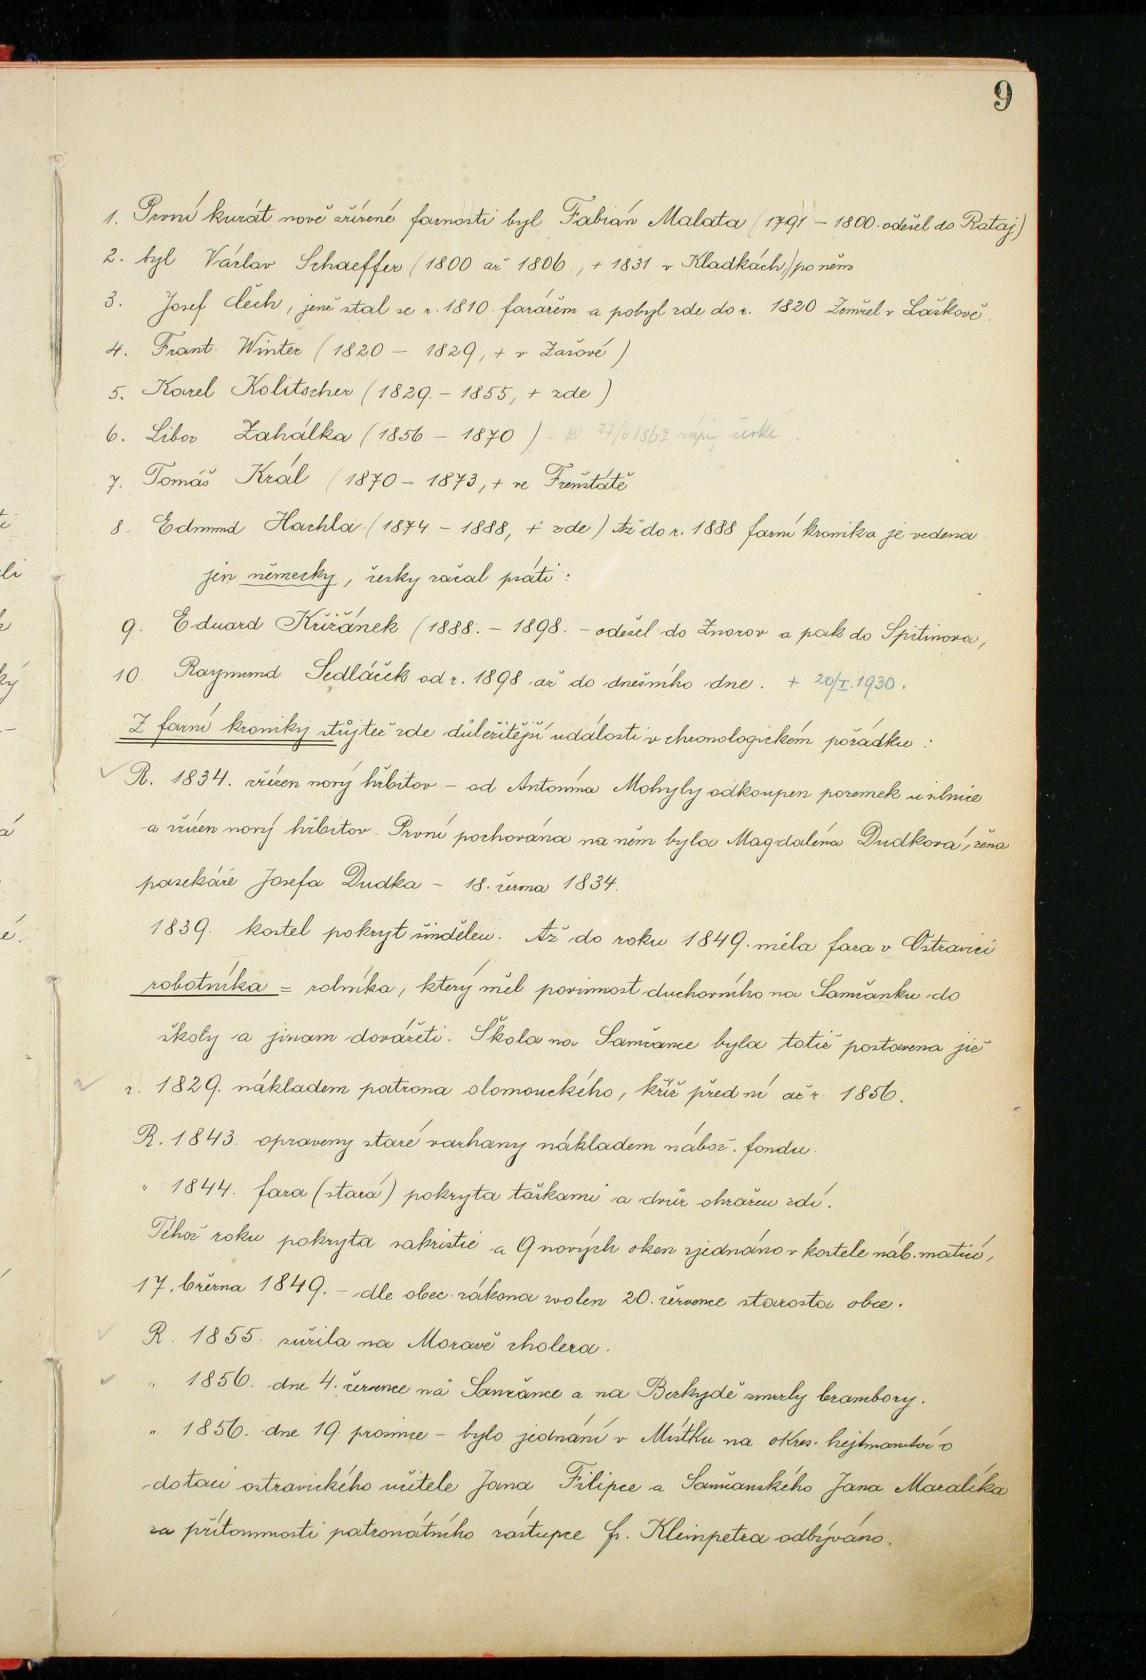 9
1. První kurát nově zřízené farnosti byl Fabián Malata (1791 – 1800. odešel do Rataj)
2. byl Václav Schaeffer (1800 až 1806., + 1831 v Kladkách,) po něm
3. Josef Čech, jenž stal se r. 1810. farářem a pobyl zde do r. 1820 Zemřel v Laškově.
4. Frant. Winter (1820 – 1829, + v Zašové)
5. Karel Kolitscher (1829. – 1855, + zde)
6. Libor Zahálka (1856 – 1870) 27/6 1867 zápisy české.
7. Tomáš Král (1870 – 1873, + ve Frenštátě
8. Edmund Hachla (1874 – 1888, + zde) Až do r. 1888 farní kronika je vedena
jen německy, česky začal psáti:
9. Eduard Křižánek (1888. – 1898. – odešel do Znorov a pak do Spitinova,
10. Raymund Sedláček od r. 1898 až do dnešního dne. + 20/I. 1930.
Z farní kroniky stůjtež zde důležitější události v chronologickém pořádku:
R. 1834. zřízen nový hřbitov – od Antonína Mohyly odkoupen pozemek u silnice
a zřízen nový hřbitov. První pochována na něm byla Magdaléna Dudková, žena
pasekáře Josefa Dudka – 18. června 1834.
1839. kostel pokryt šindělem. Až do roku 1849. měla fara v Ostravici
robotníka = rolníka, který měl povinnost duchovního na Samčanku do
školy a jinam dovážeti. Škola na Samčance byla totiž postavena již
r. 1829. nákladem patrona olomouckého, kříž před ní až r. 1856.
R. 1843. opraveny staré varhany nákladem nábož. fondu.
" 1844. fara (stará) pokryta taškami a dvůr ohražen zdí.
Téhož roku pokryta sakristie a 9 nových oken zjednáno v kostele náb. maticí,
17. března 1849. – dle obec. zákona zvolen 20. července starosta obce.
R. 1855. zuřila na Moravě cholera.
" 1856. dne 4. července na Samčance a na Bezkydě zmrzly brambory.
" 1856. dne 19. prosince – bylo jednání v Místku na okres. hejtmanství o
dotaci ostravického učitele Jana Filipce a Samčanského Jana Maralíka
za přítomnosti patronátního zástupce fr. Kleinpetra odbýváno.